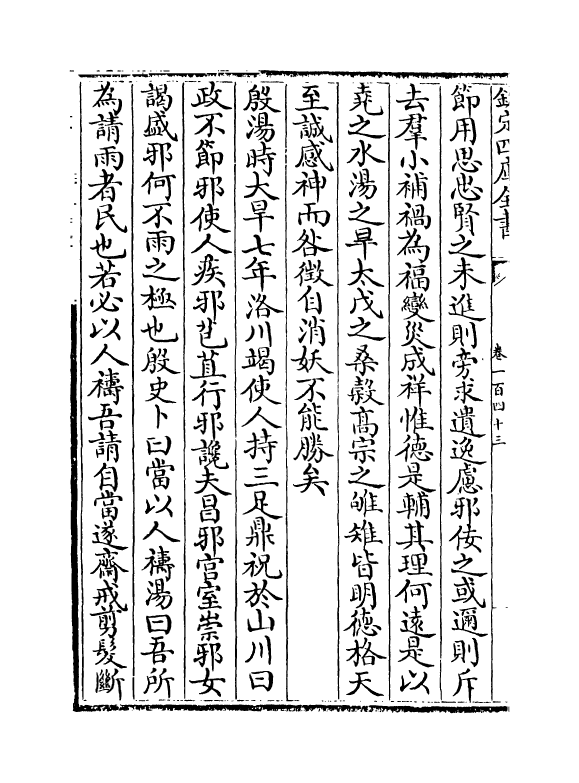 欽定四庫全書
卷一百四十三
節用思忠賢之未進則旁求遺逸慮邪佞之或邇則斥
去羣小補禍為福變災成祥惟德是輔其理何遠是以
堯之水湯之旱太戊之桑榖高宗之雊雉皆明德格天
至誠感神而咎徵自消妖不能勝矣
殷湯時大旱七年洛川竭使人持三足鼎祝於山川曰
政不節邪使人疾邪苞苴行邪讒夫昌邪宫室崇邪女
謁盛邪何不雨之極也殷史卜曰當以人禱湯曰吾所
為請雨者民也若必以人禱吾請自當遂齋戒剪髮斷